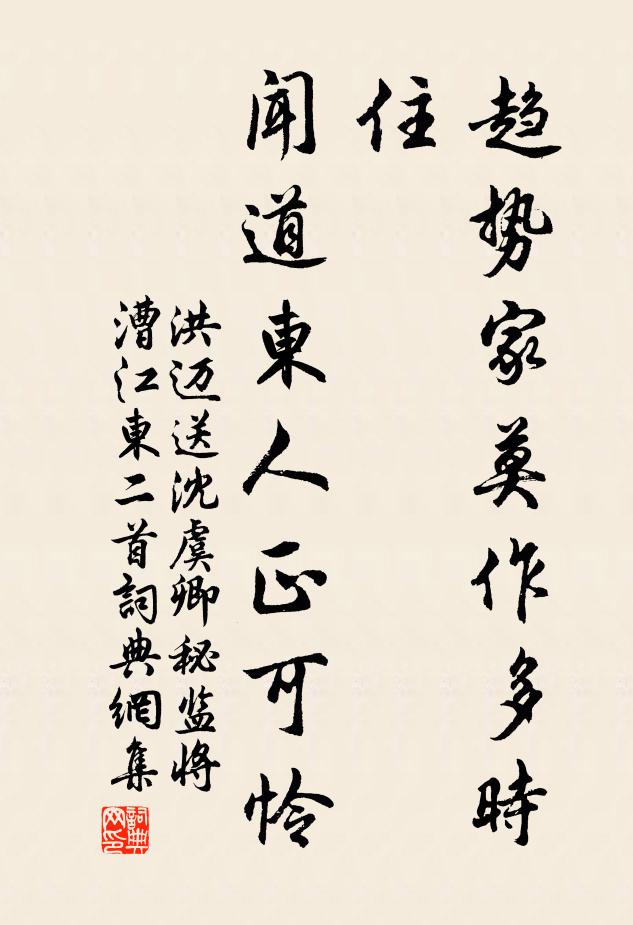 趋势家莫作多時
住
闻道東人正可怜
洪迈送沈虞卿秘监将
漕江東二首詞典網集
詞典网印